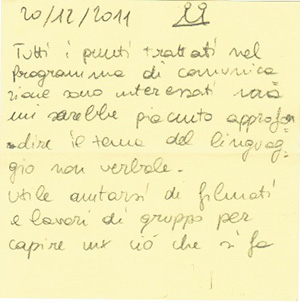 20/12/2011
Tutti i punti trattati nel
programma di comunica
zione sono interessati
mi sarebbe piaciuto approfon
dire il tema del linguag-
gio non verbale.
Utile aiutarsi di filmati
e lavori di gruppo per
capire ciò che si fa